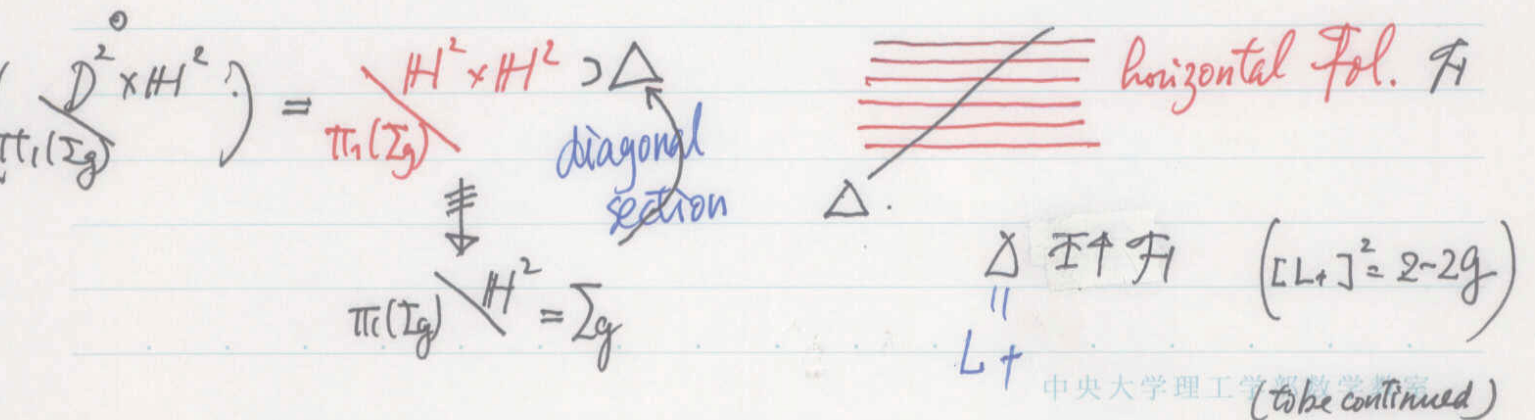 ( π₁(Σg)\D̊² × ℍ² ) = π₁(Σg)\ℍ² × ℍ² ⊃ Δ
diagonal
section
π₁(Σg)\ℍ² = Σg
horizontal Fol. ℱ
Δ.
Δ ⋔ ℱ ([L+]² = 2-2g)
||
L+
中央大学理工学部数学教室
(to be continued)